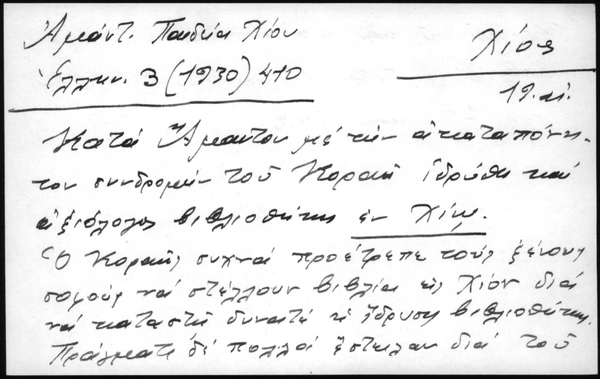 Ἀμάντ. Παιδεία Χίου
Χίος
Ἑλλην. 3 (1930) 410
19. αἰ.
Κατά Ἄμαντον μέ τήν ἀκαταπόνη-
τον συνδρομήν τοῦ Κοραῆ ἱδρύθη καί
ἀξιόλογος βιβλιοθήκη ἐν Χίῳ.
Ὁ Κοραῆς συχνά προέτρεπε τούς ξένους
σοφούς νά στέλλουν βιβλία εἰς Χίον διά
νά καταστῇ δυνατή ἡ ἵδρυσις βιβλιοθήκης.
Πράγματι δέ πολλοί ἔστειλαν διά τοῦ